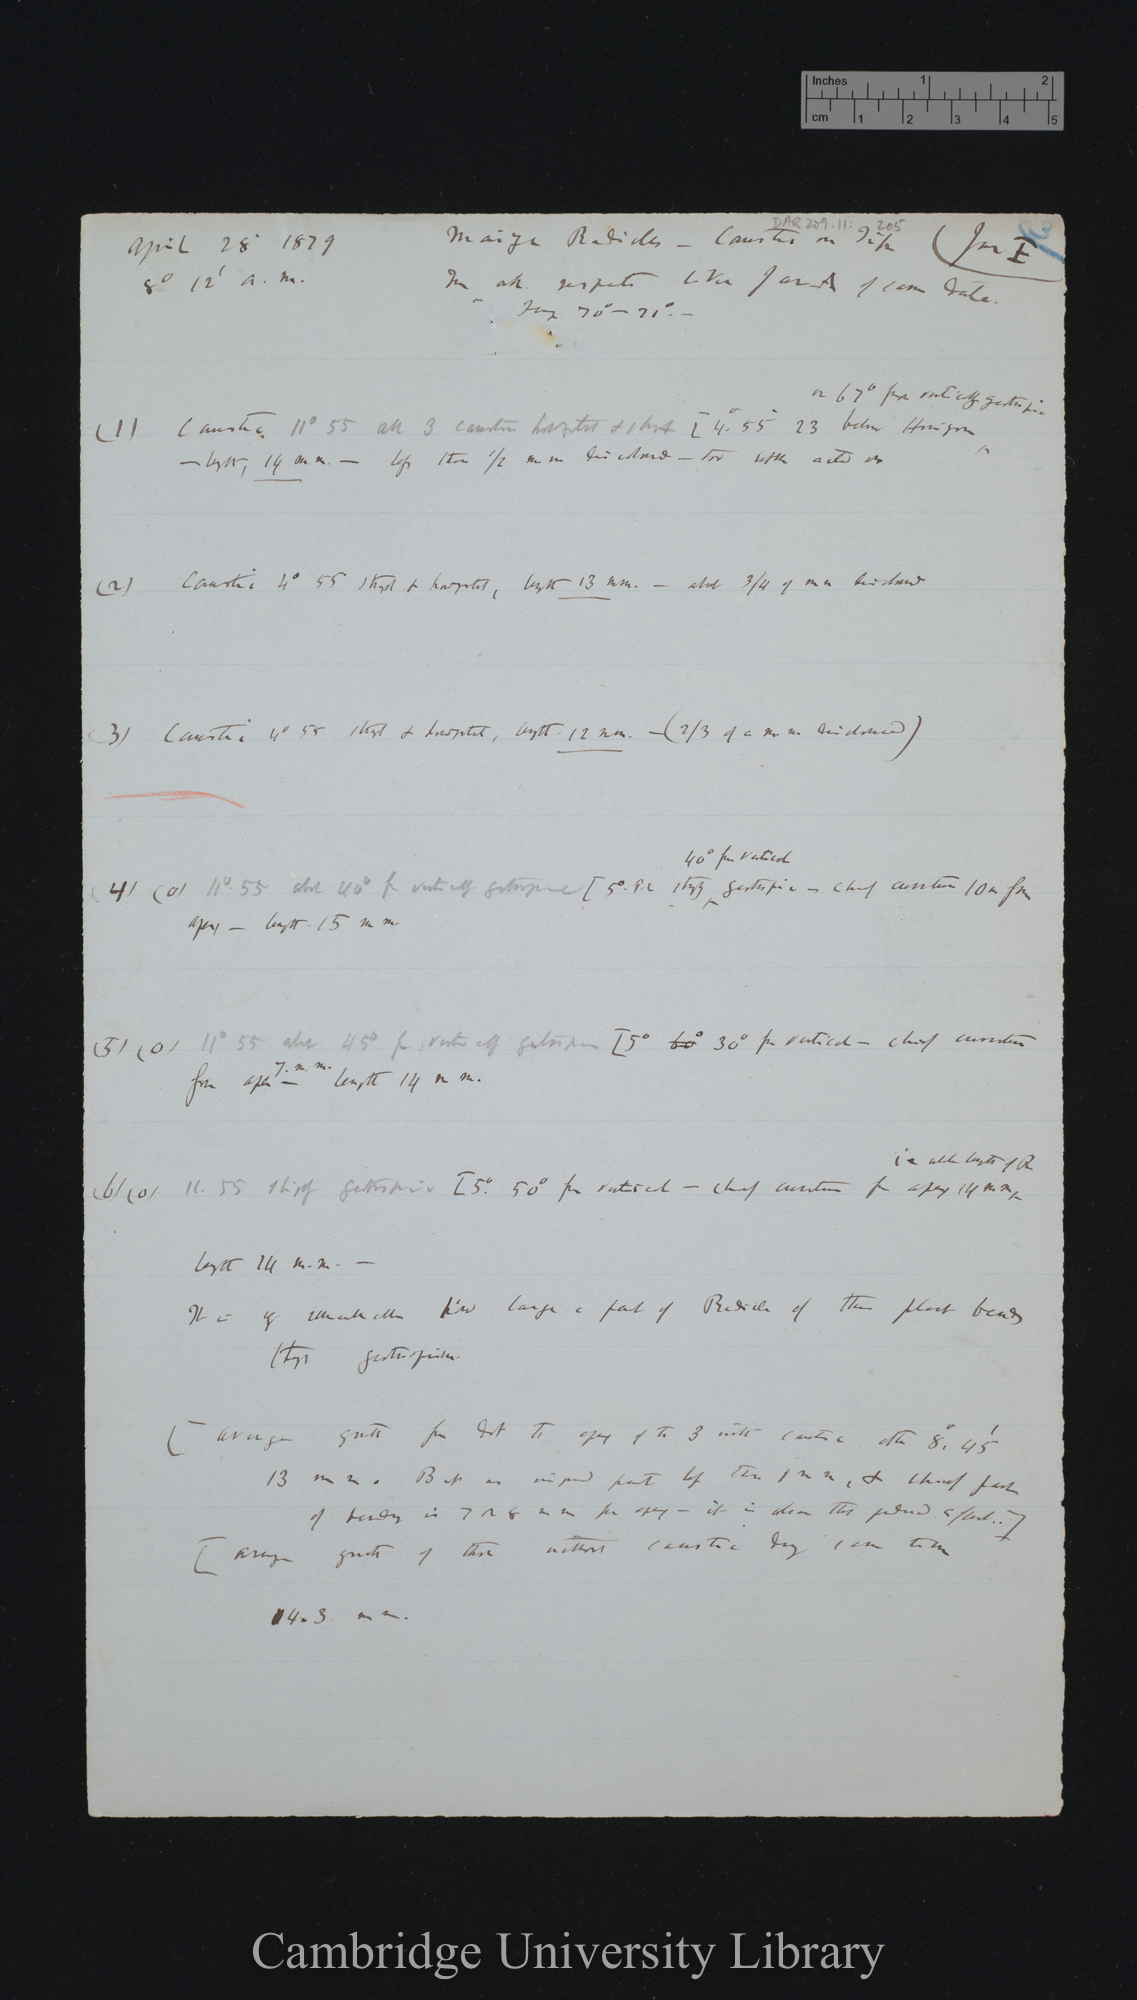 Inches 1 2
cm 1 2 3 4 5
DAR 209.11: 205
April 28 1879 Maize Radicles — Caustic on Tip (Jar I 3
8° 12' a.m. In all respects like Jar A of same date.
Temp 70° — 71°. —
or 67° from vertically geotropic
(1) Caustic 11° 55 all 3 caustic horizontal & straight [4° 55 23 below Horizon
— length, 14 mm. — less than 1/2 mm discoloured — too little acted on
(2) Caustic 4° 55 straight & horizontal, length 13 mm. — about 3/4 of mm discoloured
(3) Caustic 4° 55 straight & horizontal, length 12 mm. — (2/3 of a m.m. discoloured)
40° from vertical
(4) (0) 11°. 55 about 40° from vertically geotropic [5°. strongly geotropic — chief curvature 10 from
apex — length 15 m m.
(5) (0) 11° 55 about 45° from vertically geotropic [5° 60° 30° from vertical — chief curvature
from apex 7. m m. — length 14 m m.
i.e. whole length of R
(6) (0) 11. 55 geotropic [5°. 50° from vertical — chief curvature from apex 14 m m
length 14 m.m. —
It is remarkable how large a part of Radicle of this plant bends
through geotropism.
[Average growth from dot to apex of the 3 with caustic after 8°. 45'
13 m m. But as injured part less than 1 m m, & chief part
of bending is 7 or 8 m m from apex — it is clear this]
[average growth of those without caustic during same time
14.3 m m.
Cambridge University Library